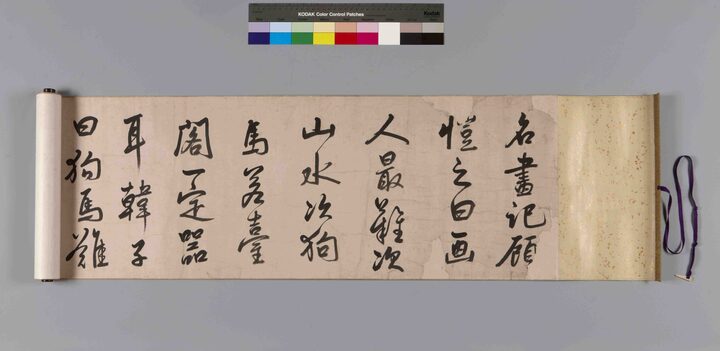 KODAK Color Control Patches
Kodak
名畫記顧
愷之曰画
人最難次
山水次狗
馬若臺
閣一定器
耳韓子
曰狗馬難